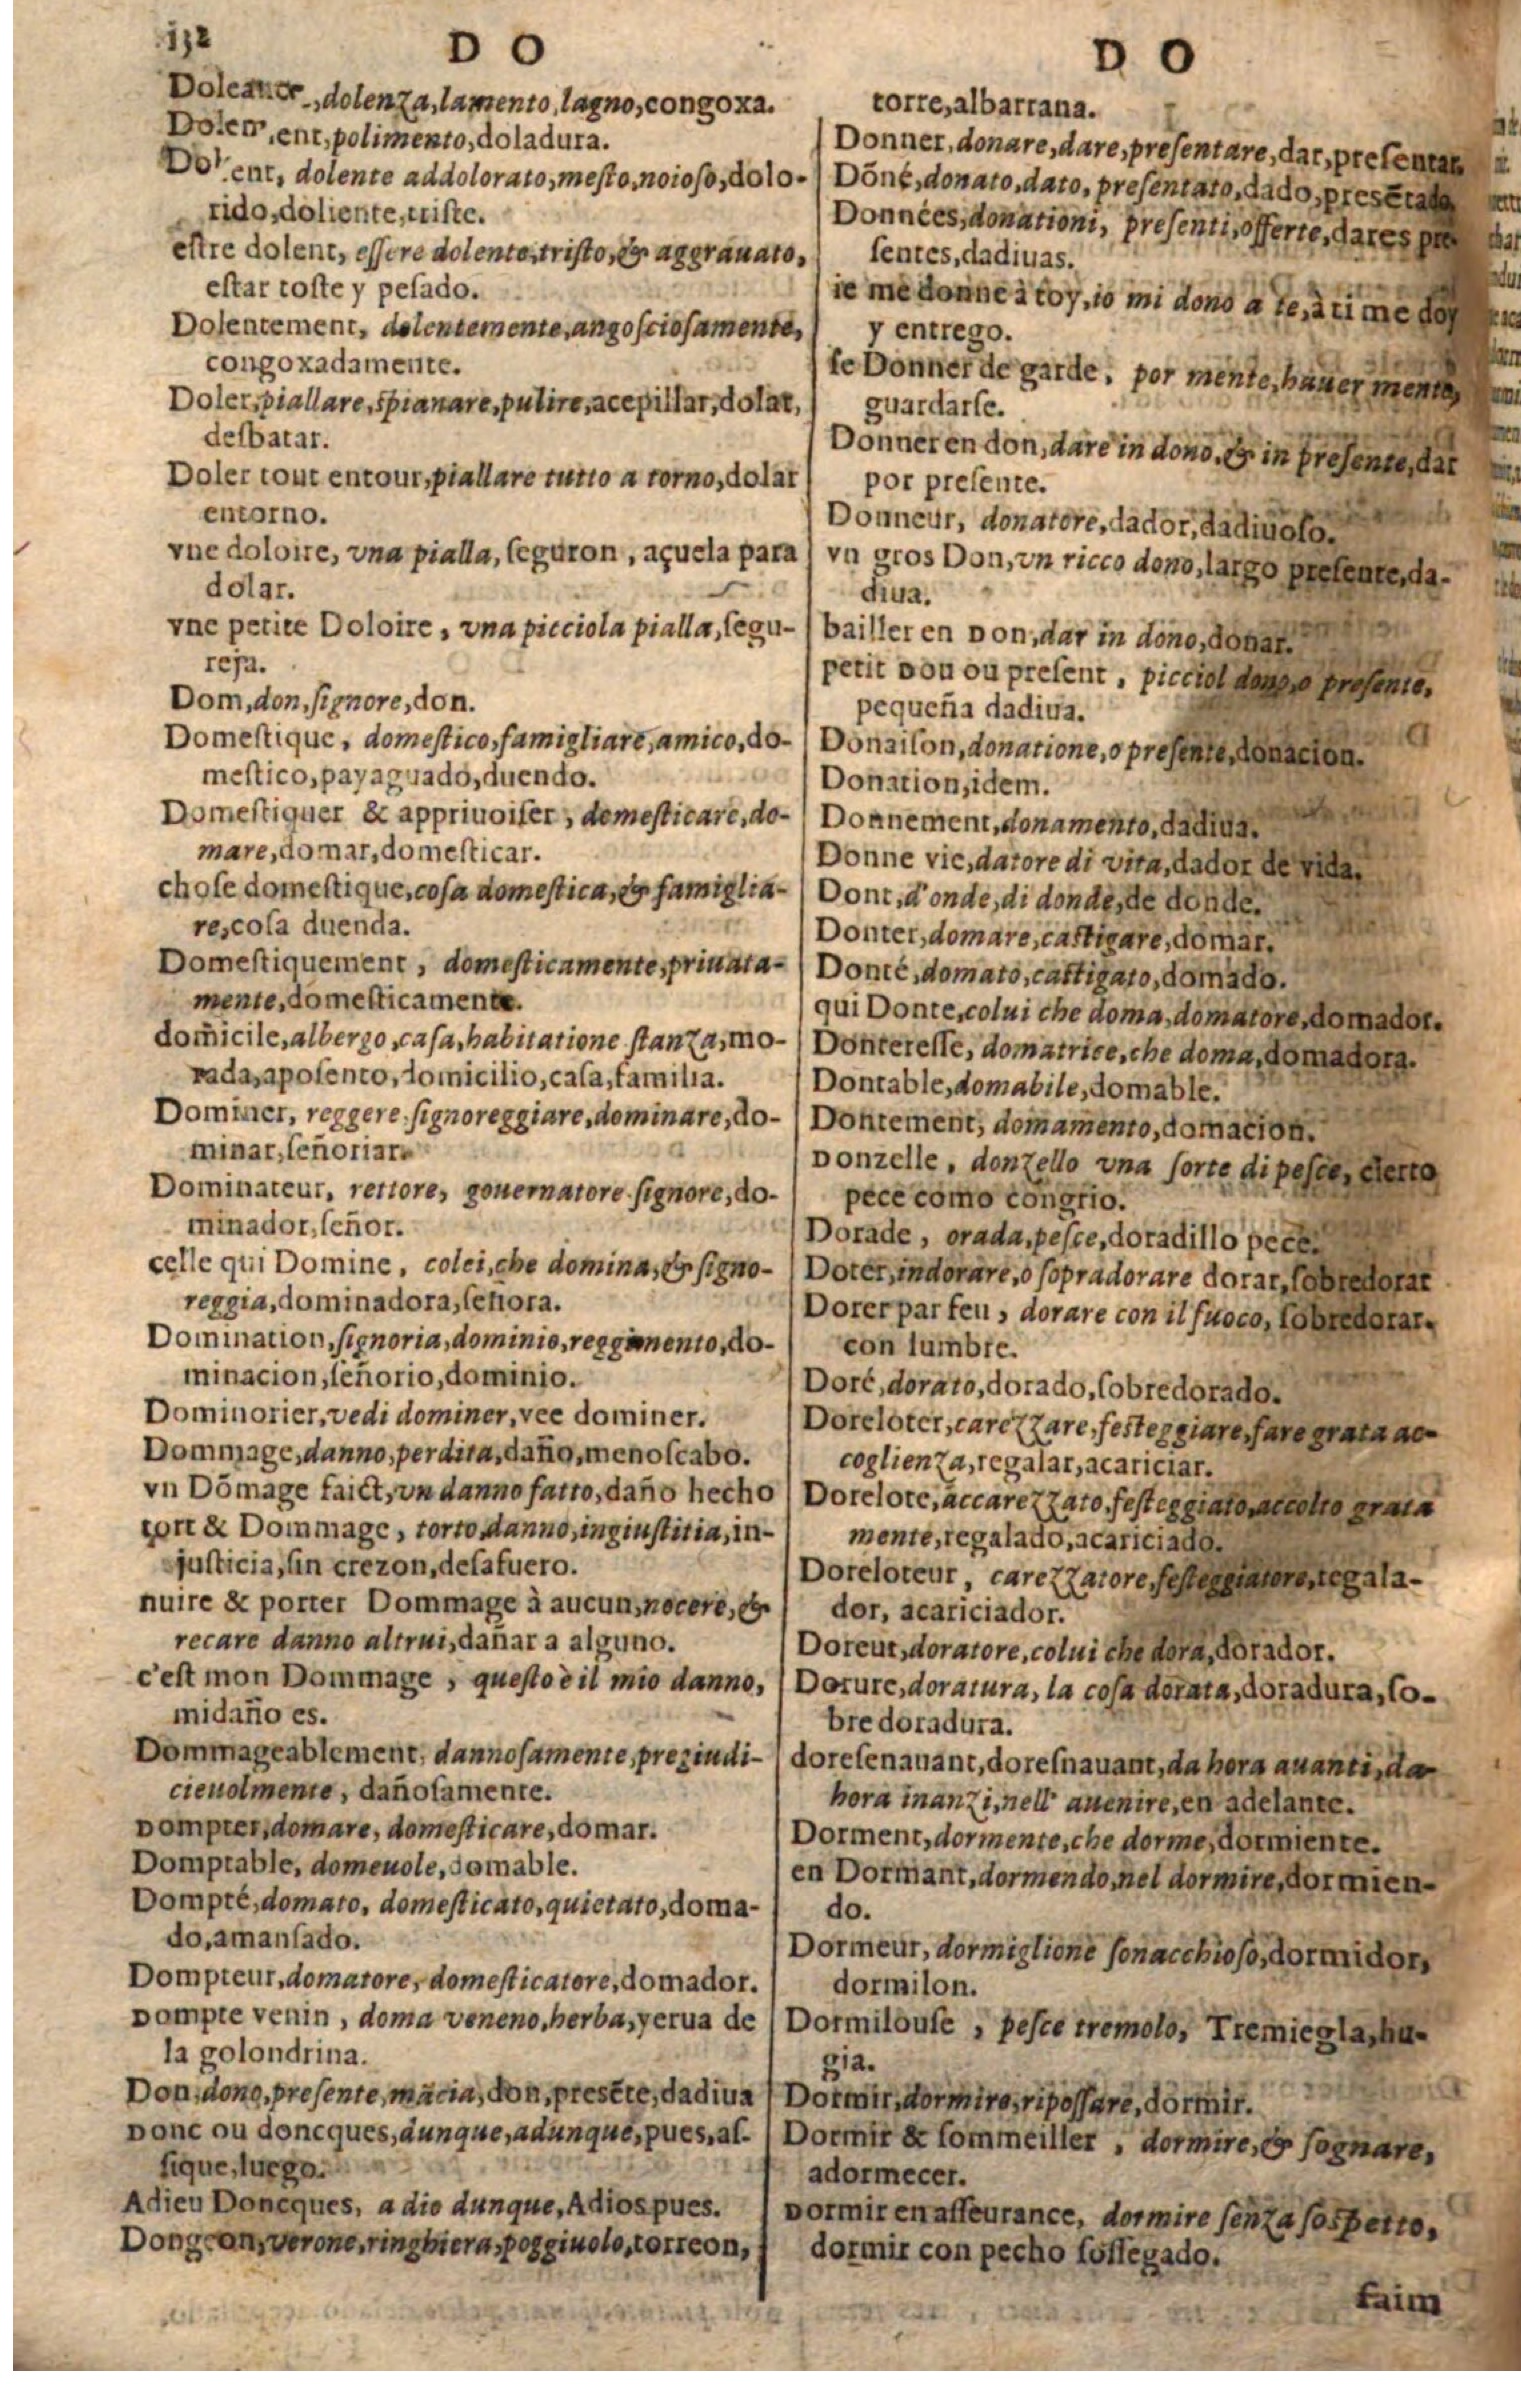 132
D O
Doleance, dolenza, lamento, lagno, congoxa.
Dolement, polimento, doladura.
Dolent, dolente addolorato, mesto, noioso, dolo-
rido, doliente, triste.
estre dolent, essere dolente, tristo, & aggrauato,
estar toste y pesado.
Dolentement, dolentemente, angosciosamente,
congoxadamente.
Doler, piallare, spianare, pulire, acepillar, dolar,
desbatar.
Doler tout entour, piallare tutto a torno, dolar
entorno.
vne doloire, vna pialla, seguron, açuela para
dolar.
vne petite Doloire, vna picciola pialla, segu-
reja.
Dom, don, signore, don.
Domestique, domestico, famigliare, amico, do-
mestico, payaguado, duendo.
Domestiquer & appriuoiser, domesticare, do-
mare, domar, domesticar.
chose domestique, cosa domestica, & famiglia-
re, cosa duenda.
Domestiquement, domesticamente, priuata-
mente, domesticamente.
domicile, albergo, casa, habitatione stanza, mo-
rada, aposento, domicilio, casa, familia.
Dominer, reggere signoreggiare, dominare, do-
minar, señoriar.
Dominateur, rettore, gouernatore signore, do-
minador, señor.
celle qui Domine, colei, che domina, & signo-
reggia, dominadora, señora.
Domination, signoria, dominio, reggimento, do-
minacion, señorio, dominio.
Dominorier, vedi dominer, vee dominer.
Dommage, danno, perdita, daño, menoscabo.
vn Dõmage faict, vn danno fatto, daño hecho
tort & Dommage, torto, danno, ingiustitia, in-
justicia, sin crezon, desafuero.
nuire & porter Dommage à aucun, nocere, &
recare danno altrui, dañar a alguno.
c'est mon Dommage, questo è il mio danno,
midaño es.
Dommageablement, dannosamente, preziudi-
cieuolmente, dañosamente.
Dompter, domare, domesticare, domar.
Domptable, domeuole, domable.
Dompté, domato, domesticato, quietato, doma-
do, amansado.
Dompteur, domatore, domesticatore, domador.
Dompte venin, doma veneno, herba, yerua de
la golondrina.
Don, dono, presente, mãcia, don, presẽte, dadiua
Donc ou doncques, dunque, adunque, pues, as-
sique, luego.
Adieu Doncques, a dio dunque, Adios pues.
Dongeon, verone, ringhiera, poggiuolo, torreon,
D O
torre, albarrana.
Donner, donare, dare, presentare, dar, presentar.
Dõné, donato, dato, presentato, dado, presẽtado
Données, donationi, presenti, offerte, dares pre-
sentes, dadiuas.
ie me donne à toy, io mi dono a te, à ti me doy
y entrego.
se Donner de garde, por mente, hauer mente,
guardarse.
Donner en don, dare in dono, & in presente, dar
por presente.
Donneur, donatore, dador, dadiuoso.
vn gros Don, vn ricco dono, largo presente, da-
diua.
bailler en Don, dar in dono, donar.
petit Don ou present, picciol dono, o presente,
pequeña dadiua.
Donaison, donatione, o presente, donacion.
Donation, idem.
Donnement, donamento, dadiua.
Donne vie, datore di vita, dador de vida.
Dont, d'onde, di donde, de donde.
Donter, domare, castigare, domar.
Donté, domato, castigato, domado.
qui Donte, colui che doma, domatore, domador.
Donteresse, domatrice, che doma, domadora.
Dontable, domabile, domable.
Dontement, domamento, domacion.
Donzelle, donzello vna sorte di pesce, cierto
pece como congrio.
Dorade, orada, pesce, doradillo pece.
Dorer, indorare, o sopradorare dorar, sobredorar
Dorer par feu, dorare con il fuoco, sobredorar.
con lumbre.
Doré, dorato, dorado, sobredorado.
Doreloter, carezzare, festeggiare, fare grata ac-
coglienza, regalar, acariciar.
Dorelote, accarezzato, festeggiato, accolto grata
mente, regalado, acariciado.
Doreloteur, carezzatore, festeggiatore, regala-
dor, acariciador.
Doreur, doratore, colui che dora, dorador.
Dorure, doratura, la cosa dorata, doradura, so-
bre doradura.
doresenauant, doresnauant, da hora auanti, da
hora inanzi, nell' auenire, en adelante.
Dorment, dormente, che dorme, dormiente.
en Dormant, dormendo, nel dormire, dormien-
do.
Dormeur, dormiglione sonacchioso, dormidor,
dormilon.
Dormilouse, pesce tremolo, Tremiegla, hu-
gia.
Dormir, dormire, ripossare, dormir.
Dormir & sommeiller, dormire, & sognare,
adormecer.
Dormir en asseurance, dormire senza sospetto,
dormir con pecho sossegado.
faim